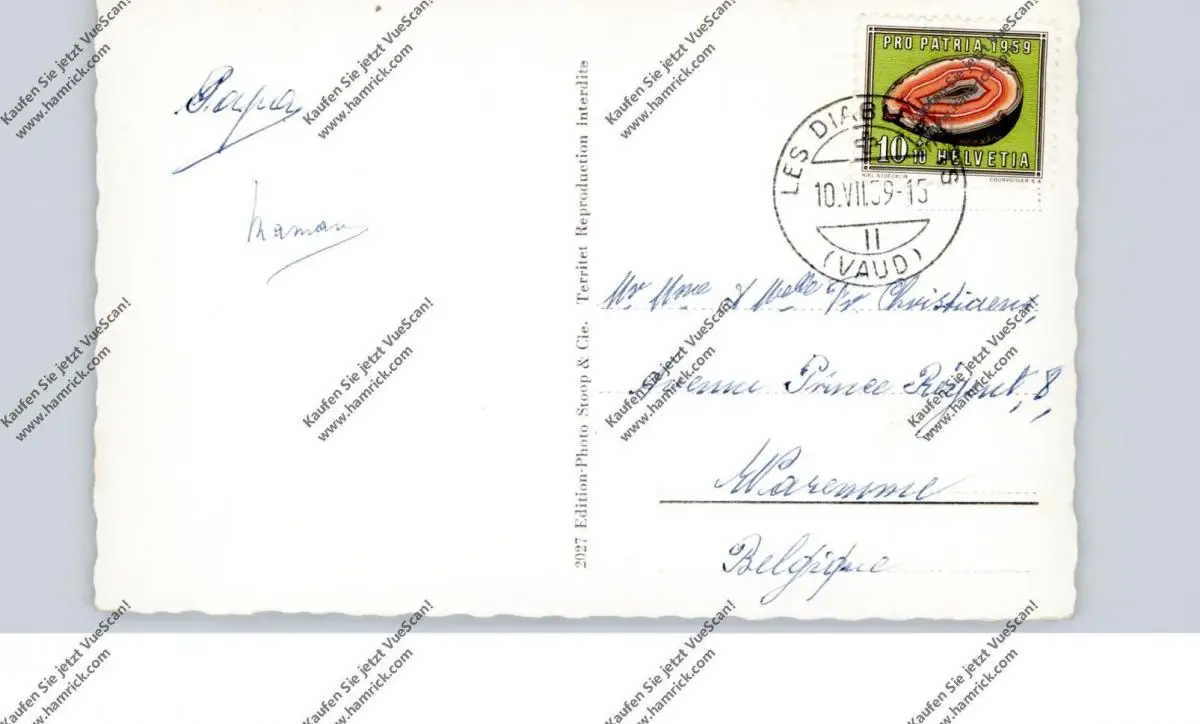 Papa
Maman
2027 Edition-Photo Stoop & Cie. Territet Reproduction interdite
PRO PATRIA 1959
10+10 HELVETIA
NIKL. STOECKLIN COURVOISIER S.A.
LES DIABLERETS
10.VII.59-15
II
(VAUD)
Mr Mme & Melle Christiaens,
Avenue Prince Régent, 8,
Waremme
Belgique
Kaufen Sie jetzt VueScan!
www.hamrick.com